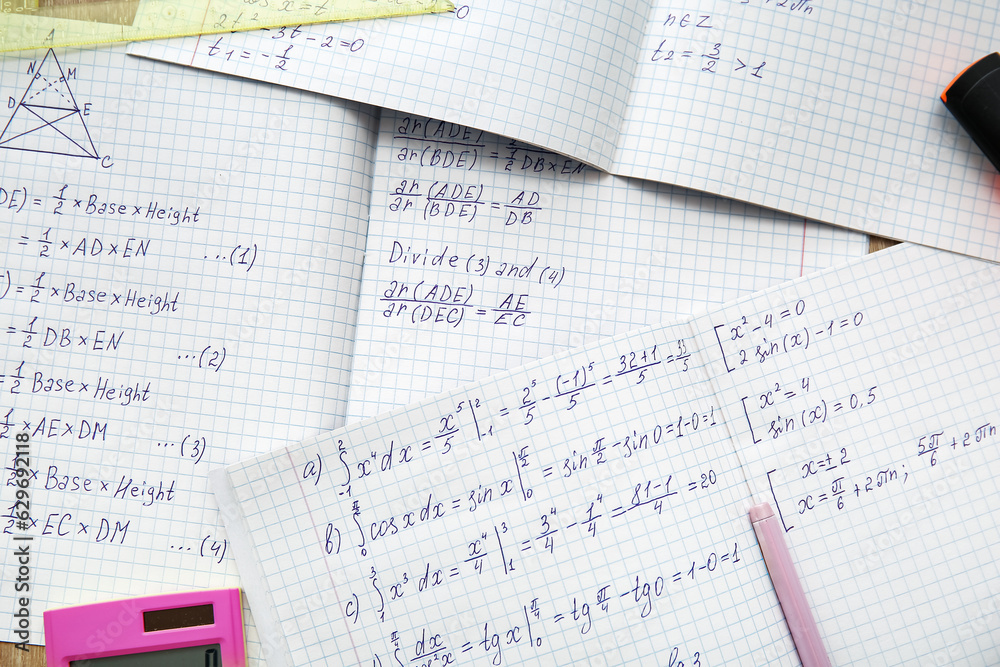 cos x = t
2t² - 3t - 2 = 0
t₁ = -1/2
+ 2πn
n ∈ Z
t₂ = 3/2 > 1
A
N
M
D
E
C
DE) = 1/2 × Base × Height
= 1/2 × AD × EN ...(1)
) = 1/2 × Base × Height
= 1/2 DB × EN ...(2)
= 1/2 Base × Height
1/2 × AE × DM ...(3)
1/2 × Base × Height
1/2 × EC × DM ...(4)
ar(ADE)/ar(BDE) = /1/2 DB × EN
ar (ADE)/ar (BDE) = AD/DB
Divide (3) and (4)
ar(ADE)/ar(DEC) = AE/EC
a) ∫₋₁² x⁴ dx = x⁵/5 |₋₁² = 2⁵/5 - (-1)⁵/5 = 32+1/5 = 33/5
b) ∫₀^(π/2) cos x dx = sin x |₀^(π/2) = sin π/2 - sin 0 = 1-0 = 1
c) ∫₁³ x³ dx = x⁴/4 |₁³ = 3⁴/4 - 1⁴/4 = 81-1/4 = 20
∫^(π/4) dx/cos²x = tg x |₀^(π/4) = tg π/4 - tg 0 = 1-0 = 1
[ x² - 4 = 0
2 sin(x) - 1 = 0
[ x² = 4
sin(x) = 0,5
[ x = ± 2
x = π/6 + 2πn; 5π/6 + 2πn
Adobe Stock | #629692118